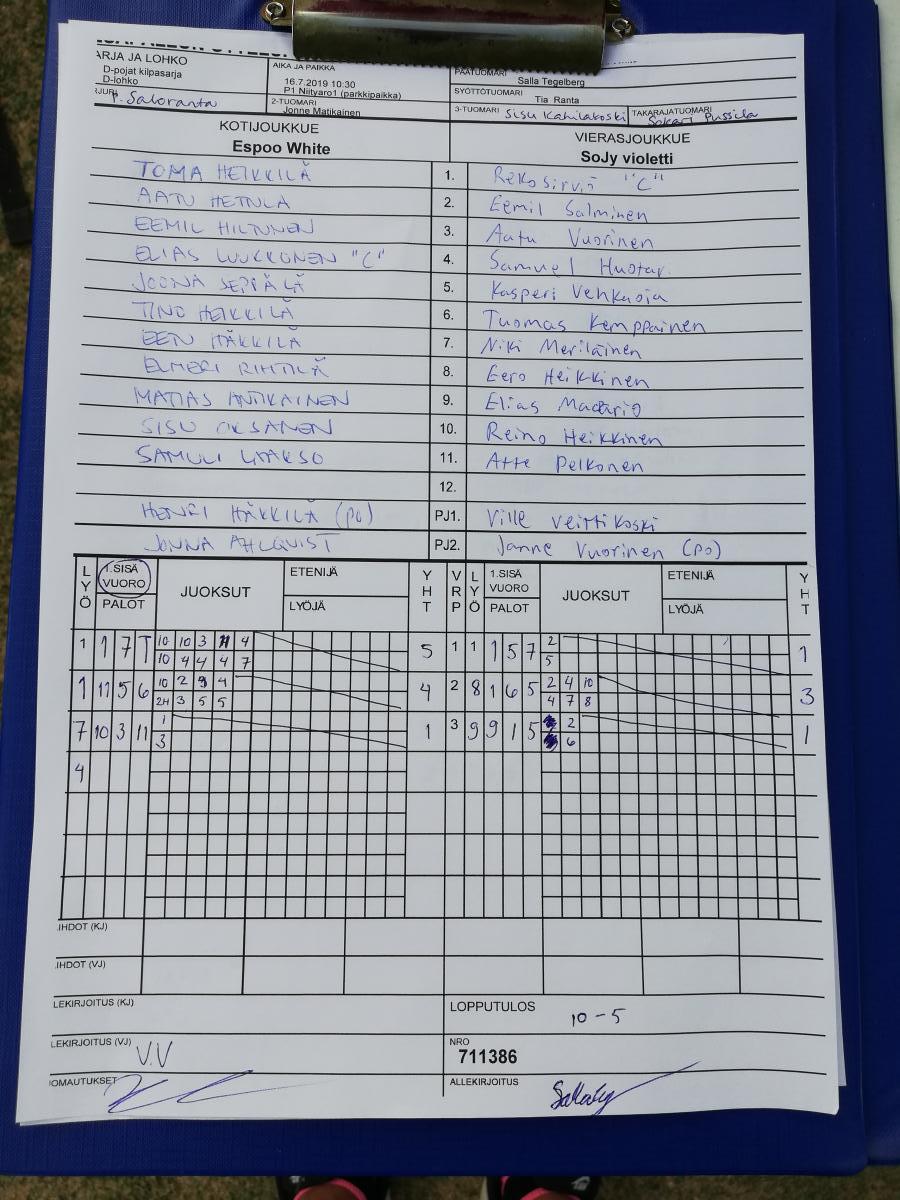 ARJA JA LOHKO
D-pojat kilpasarja
D-lohko
AIKA JA PAIKKA
16.7.2019 10:30
P1 Niityaro1 (parkkipaikka)
PÄÄTUOMARI
Salla Tegelberg
SYÖTTÖTUOMARI
Tia Ranta
2-TUOMARI
Jonne Matikainen
3-TUOMARI Sisu Kahilakoski
TAKARAJATUOMARI
KOTIJOUKKUE
Espoo White
VIERASJOUKKUE
SoJy violetti
TOMA HEIKKILÄ 1. Reko Sirviö "C"
AATU HETULA 2. Eemil Salminen
EEMIL HILTUNEN 3. Aatu Vuorinen
ELIAS LUUKKONEN "C" 4. Samuel Huotar
JOONA SEPPÄLÄ 5. Kasperi Vehkaoja
TINO HEIKKILÄ 6. Tuomas Kemppainen
EEN HÄKKILÄ 7. Niki Meriläinen
ELMERI RIHTILÄ 8. Eero Heikkinen
MATIAS ANTIKAINEN 9. Elias Madario
SISU OKSANEN 10. Reino Heikkinen
SAMULI LAAKSO 11. Atte Pelkonen
12.
HENRI HÄKKILÄ (PO) PJ1. Ville Veirtikoski
JONNA AHLQVIST PJ2. Janne Vuorinen (PO)
LYÖ 1.SISÄ VUORO PALOT JUOKSUT ETENIJÄ LYÖJÄ YHT VRP LYÖ 1.SISÄ VUORO PALOT JUOKSUT ETENIJÄ LYÖJÄ YHT
1 1 7 T 10 10 3 11 4 5 1 1 1 5 7 2 1
10 4 4 4 7 5
1 11 5 6 10 2 9 4 4 2 8 1 6 5 2 4 10 3
2H 3 5 5 4 7 8
7 10 3 11 1 1 3 9 9 1 5 2 1
3 6
4
IHDOT (KJ)
IHDOT (VJ)
LEKIRJOITUS (KJ)
LOPPUTULOS
10-5
LEKIRJOITUS (VJ) V.V
NRO
711386
OMAUTUKSET
ALLEKIRJOITUS